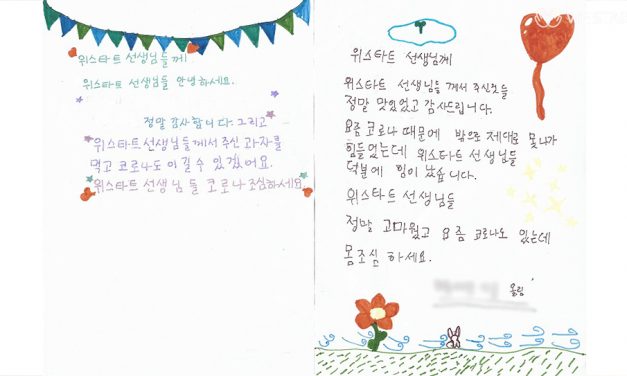 위스타트 선생님들께
위스타트 선생님들 안녕하세요.
정말 감사합니다. 그리고
위스타트선생님들께서 주신 과자를
먹고 코로나도 이길수 있겠어요.
위스타트선생님 들 코로나 조심하세요.
위스타트 선생님께
위스타트 선생님들 께서 주신것들
정말 맛있었고 감사드립니다.
요즘 코로나 때문에 밖으로 제대로 못나가
힘들었는데 위스타트 선생님들
덕분에 힘이 났습니다.
위스타트 선생님들
정말 고마웠고 요즘 코로나도 있는데
몸조심 하세요.
올림